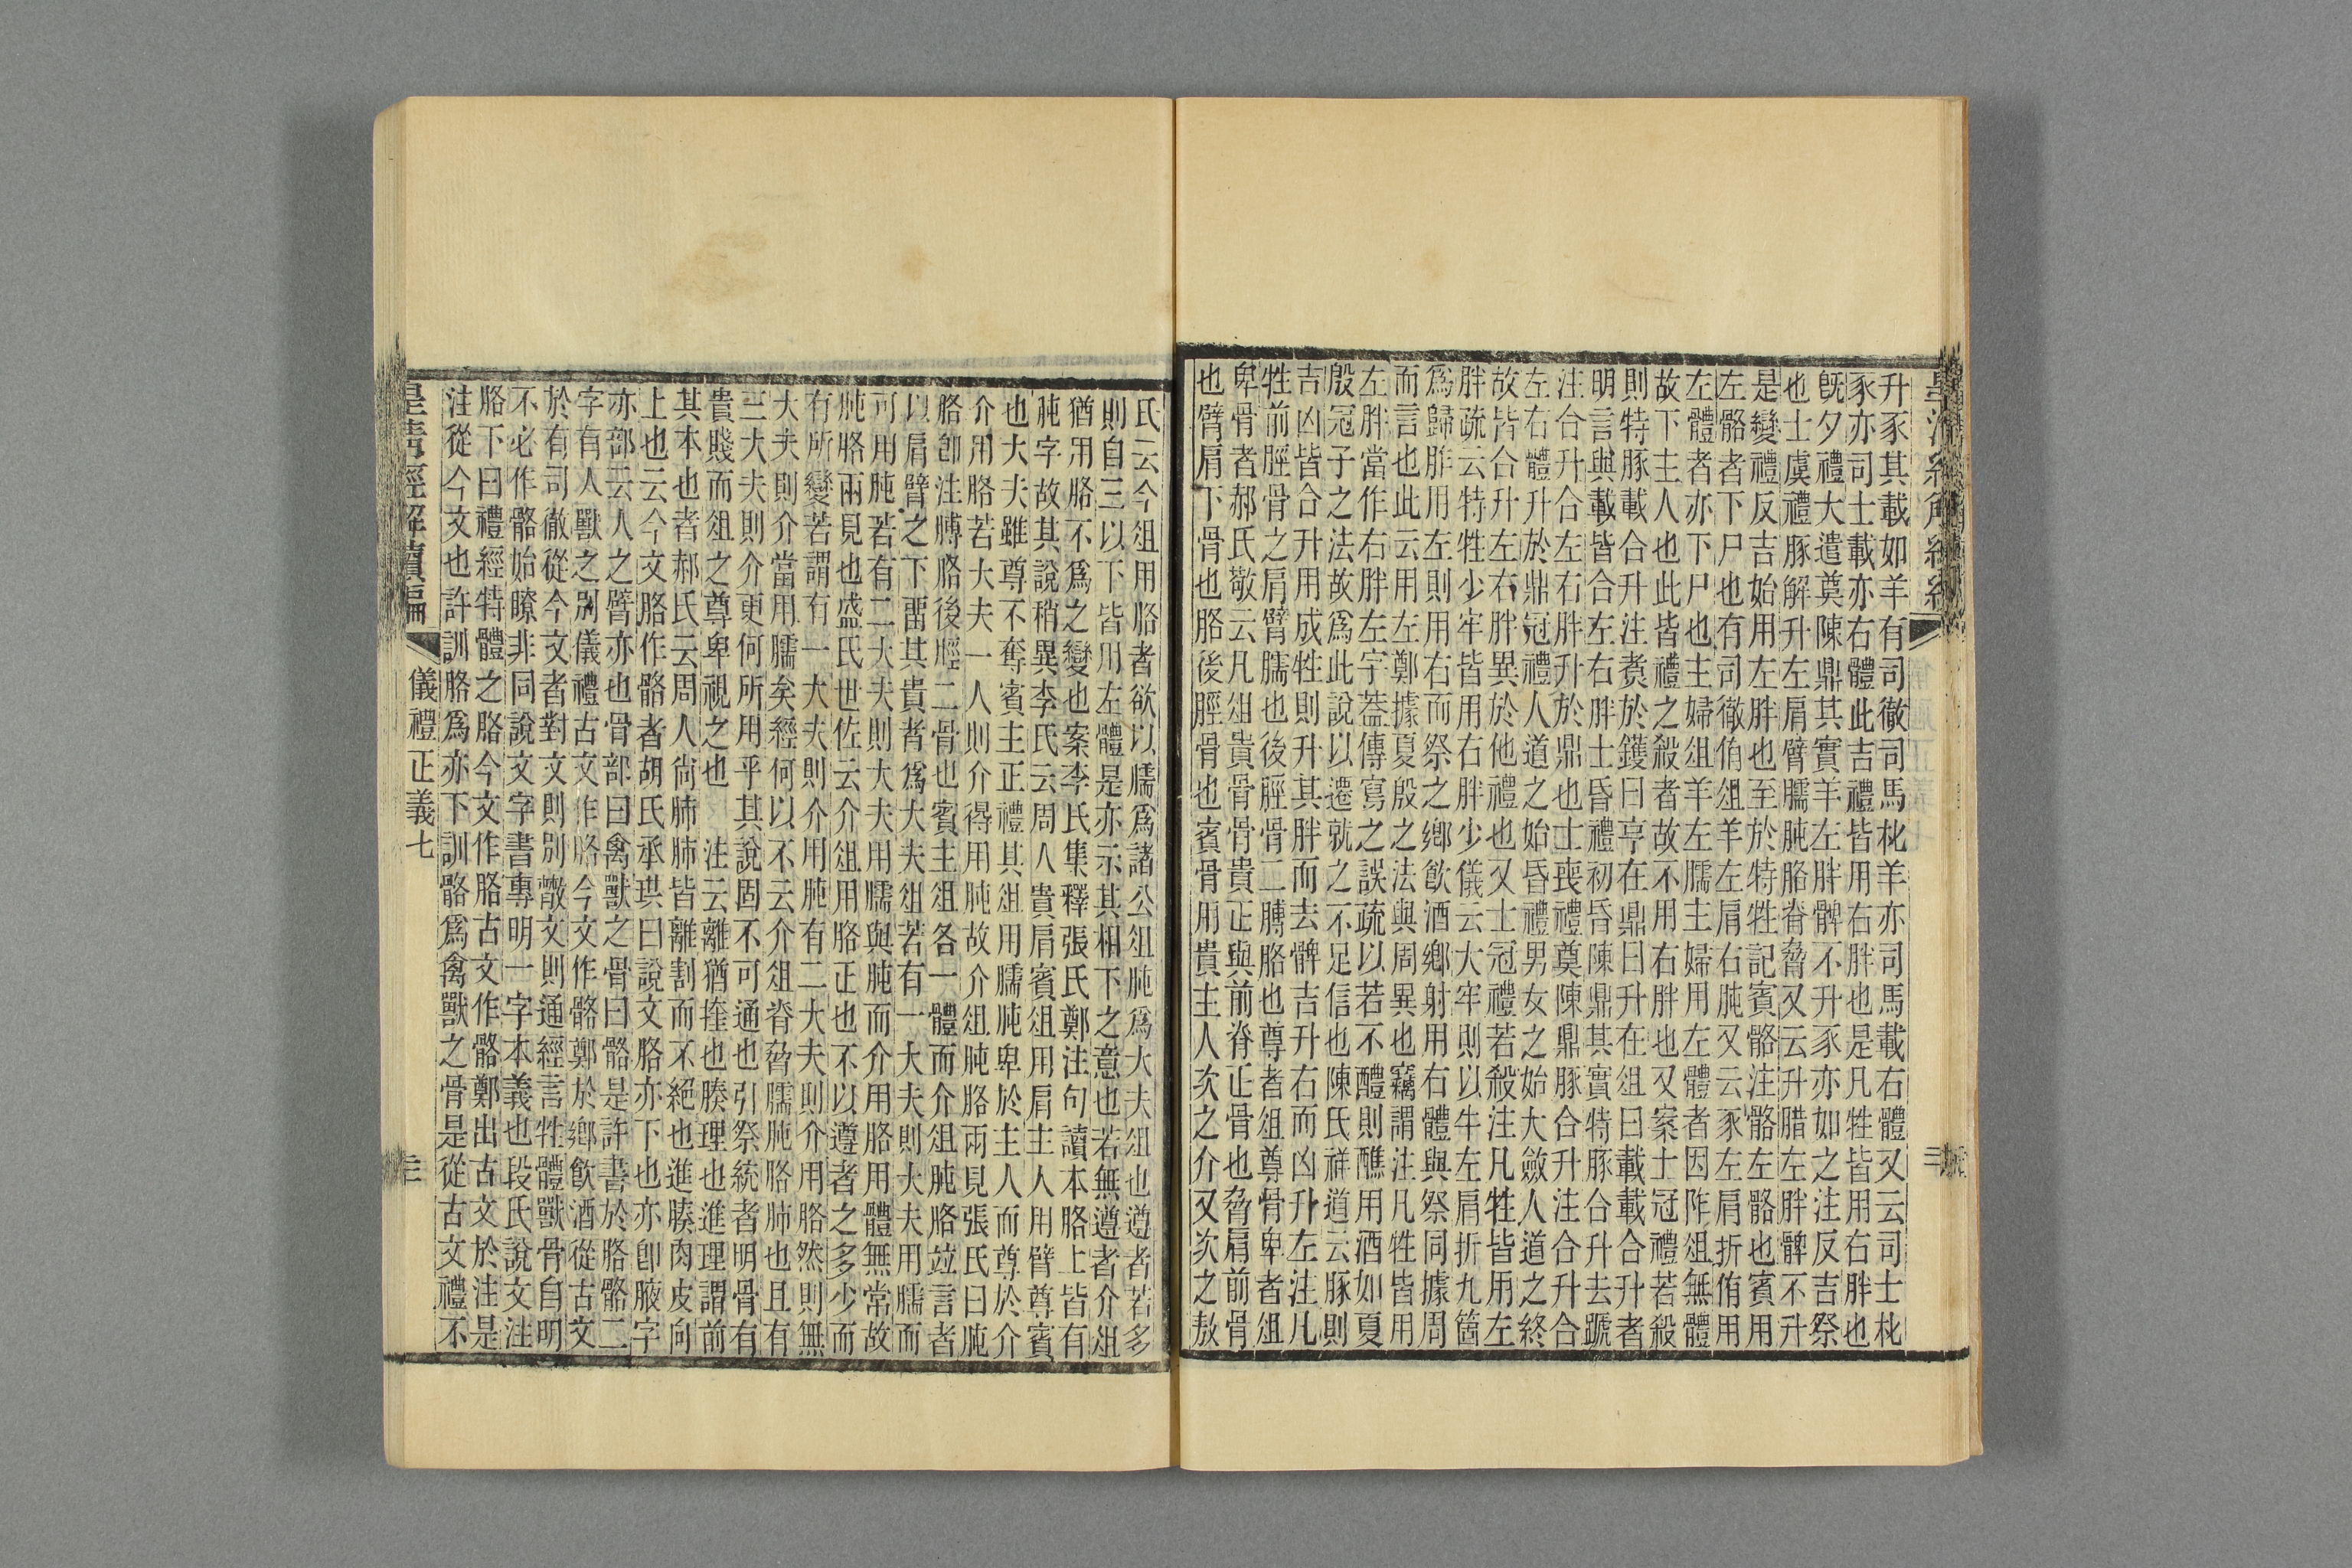 升豕其載如羊有司徹司馬朼羊亦司馬載右體又云司士朼
豕亦司士載亦右體此吉禮皆用右胖也是凡牲皆用右胖也
旣夕禮大遣奠陳鼎其實羊左胖髀不升豕亦如之注反吉祭
也士虞禮豚解升左肩臂臑肫胳脊脅又云升腊左胖髀不升
是變禮反吉始用左胖也至於特牲記賓骼注骼左骼也賓用
左骼者下尸也有司徹侑俎羊左肩右肫又云豕左肩折侑用
左體者亦下尸也主婦俎羊左臑主婦用左體者因阼俎無體
故下主人也此皆禮之殺者故不用右胖也又案士冠禮若殺
則特豚載合升注煑於鑊曰亨在鼎曰升在俎曰載載合升者
明言與載皆合左右胖士昏禮初昏陳鼎其實特豚合升去蹏
注合升合左右胖升於鼎也士喪禮奠陳鼎豚合升注合升合
左右體升於鼎冠禮人道之始昏禮男女之始大斂人道之終
故皆合升左右胖異於他禮也又士冠禮若殺注凡牲皆用左
胖疏云特牲少牢皆用右胖少儀云大牢則以牛左肩折九箇
爲歸胙用左則用右而祭之鄉飮酒鄉射用右體與祭同據周
而言也此云用左鄭據夏殷之法與周異也竊謂注凡牲皆用
左胖當作右胖左字葢傳寫之誤疏以若不醴則醮用酒如夏
殷冠子之法故爲此說以遷就之不足信也陳氏祥道云豚則
吉凶皆合升用成牲則升其胖而去髀吉升右而凶升左注凡
牲前脛骨之肩臂臑也後脛骨二膊胳也尊者俎尊骨卑者俎
卑骨者郝氏敬云凡俎貴骨骨貴正與前脊正骨也脅肩前骨
也臂肩下骨也胳後脛骨也賓骨用貴主人次之介又次之敖
氏云今俎用胳者欲以臑爲諸公俎肫爲大夫俎也遵者若多
則自三以下皆用左體是亦示其相下之意也若無遵者介俎
猶用胳不爲之變也案李氏集釋張氏鄭注句讀本胳上皆有
肫字故其說稍異李氏云周人貴肩賓俎用肩主人用臂尊賓
也大夫雖尊不奪賓主正禮其俎用臑肫卑於主人而尊於介
介用胳若大夫一人則介得用肫故介俎肫胳兩見張氏曰肫
胳卽注膊胳後脛二骨也賓主俎各一體而介俎肫胳竝言者
以肩臂之下畱其貴者爲大夫俎若有一大夫則大夫用臑而
可用肫若有二大夫則大夫用臑與肫而介用胳用體無常故
肫胳兩見也盛氏世佐云介俎用胳正也不以遵者之多少而
有所變若謂有一大夫則介用肫有二大夫則介用胳然則無
大夫則介當用臑矣經何以不云介俎脊脅臑肫胳肺也且有
三大夫則介更何所用乎其說固不可通也引祭統者明骨有
貴賤而俎之尊卑視之也　注云離猶㨒也腠理也進理謂前
其本也者郝氏云周人尙肺肺皆離割而不絕也進腠肉皮向
上也云今文胳作骼者胡氏承珙曰說文胳亦下也亦卽腋字
亦部云人之臂亦也骨部曰禽獸之骨曰骼是許書於胳骼二
字有人獸之別儀禮古文作胳今文作骼鄭於鄉飮酒從古文
於有司徹從今文者對文則別散文則通經言牲體獸骨自明
不必作骼始瞭非同說文字書專明一字本義也段氏說文注
胳下曰禮經特體之胳今文作胳古文作骼鄭出古文於注是
注從今文也許訓胳爲亦下訓骼爲禽獸之骨是從古文禮不
皇清經解續編　儀禮正義七　三